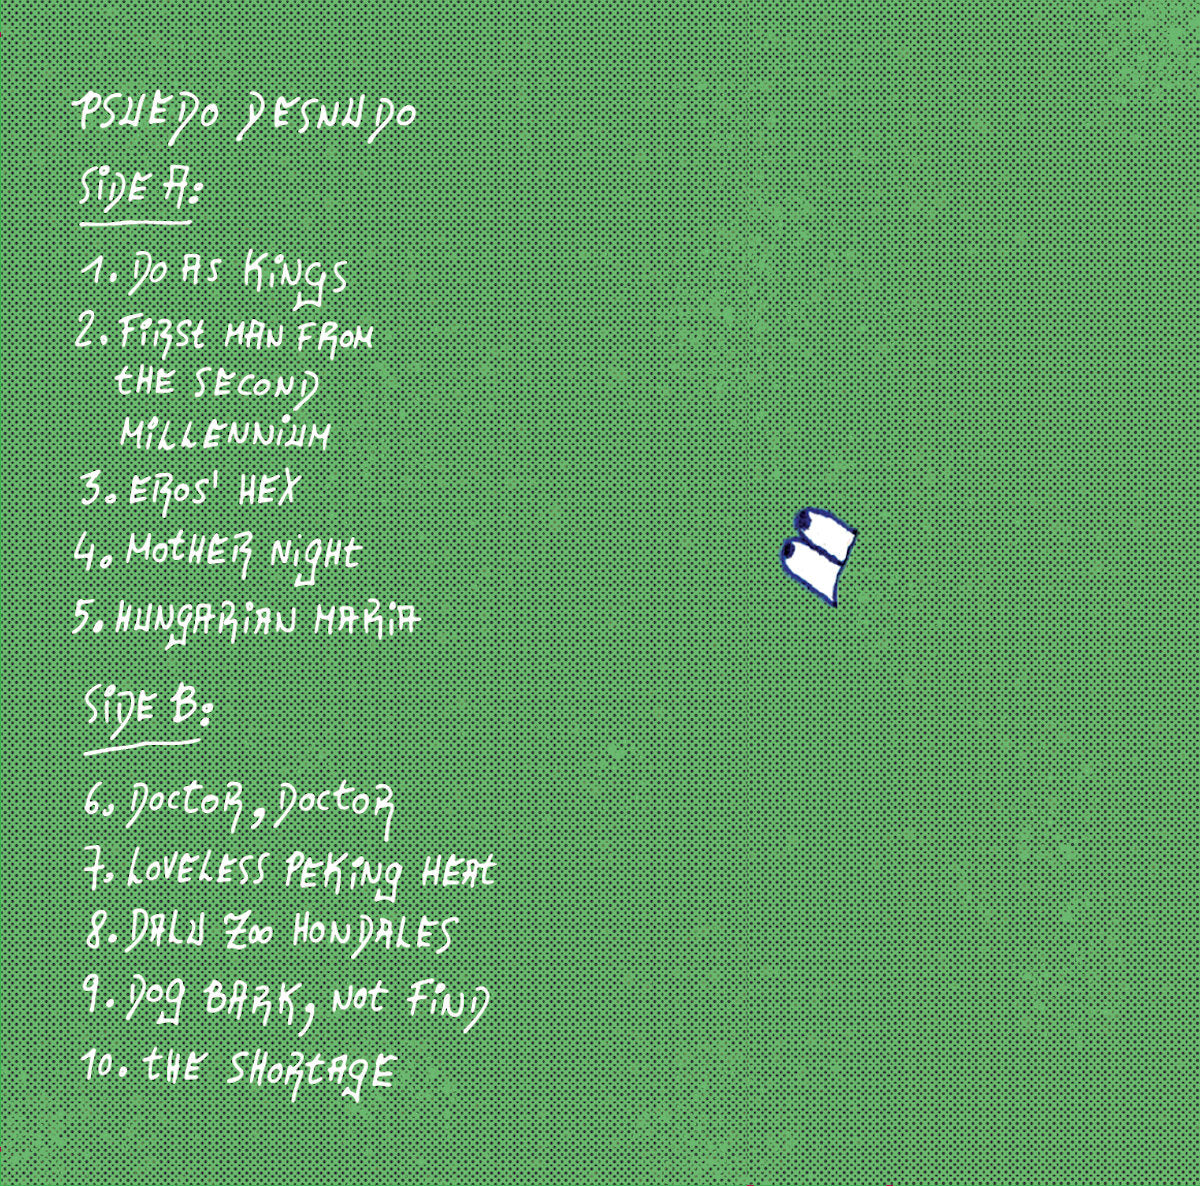 PSUEDO DESNUDO
SiDE A:
1. DO AS KiNgS
2. FiRSt MAN FROM
tHE SECOND
MiLLENNiUM
3. EROS' HEX
4. MOtHER NigHt
5. HUNgARiAN MARiA
SiDE B:
6. DOctOR, DOctOR
7. LOVELESS PEKiNg HEAt
8. DALU ZOO HONDALES
9. DOg BARK, NOt FiND
10. tHE SHORtAgE